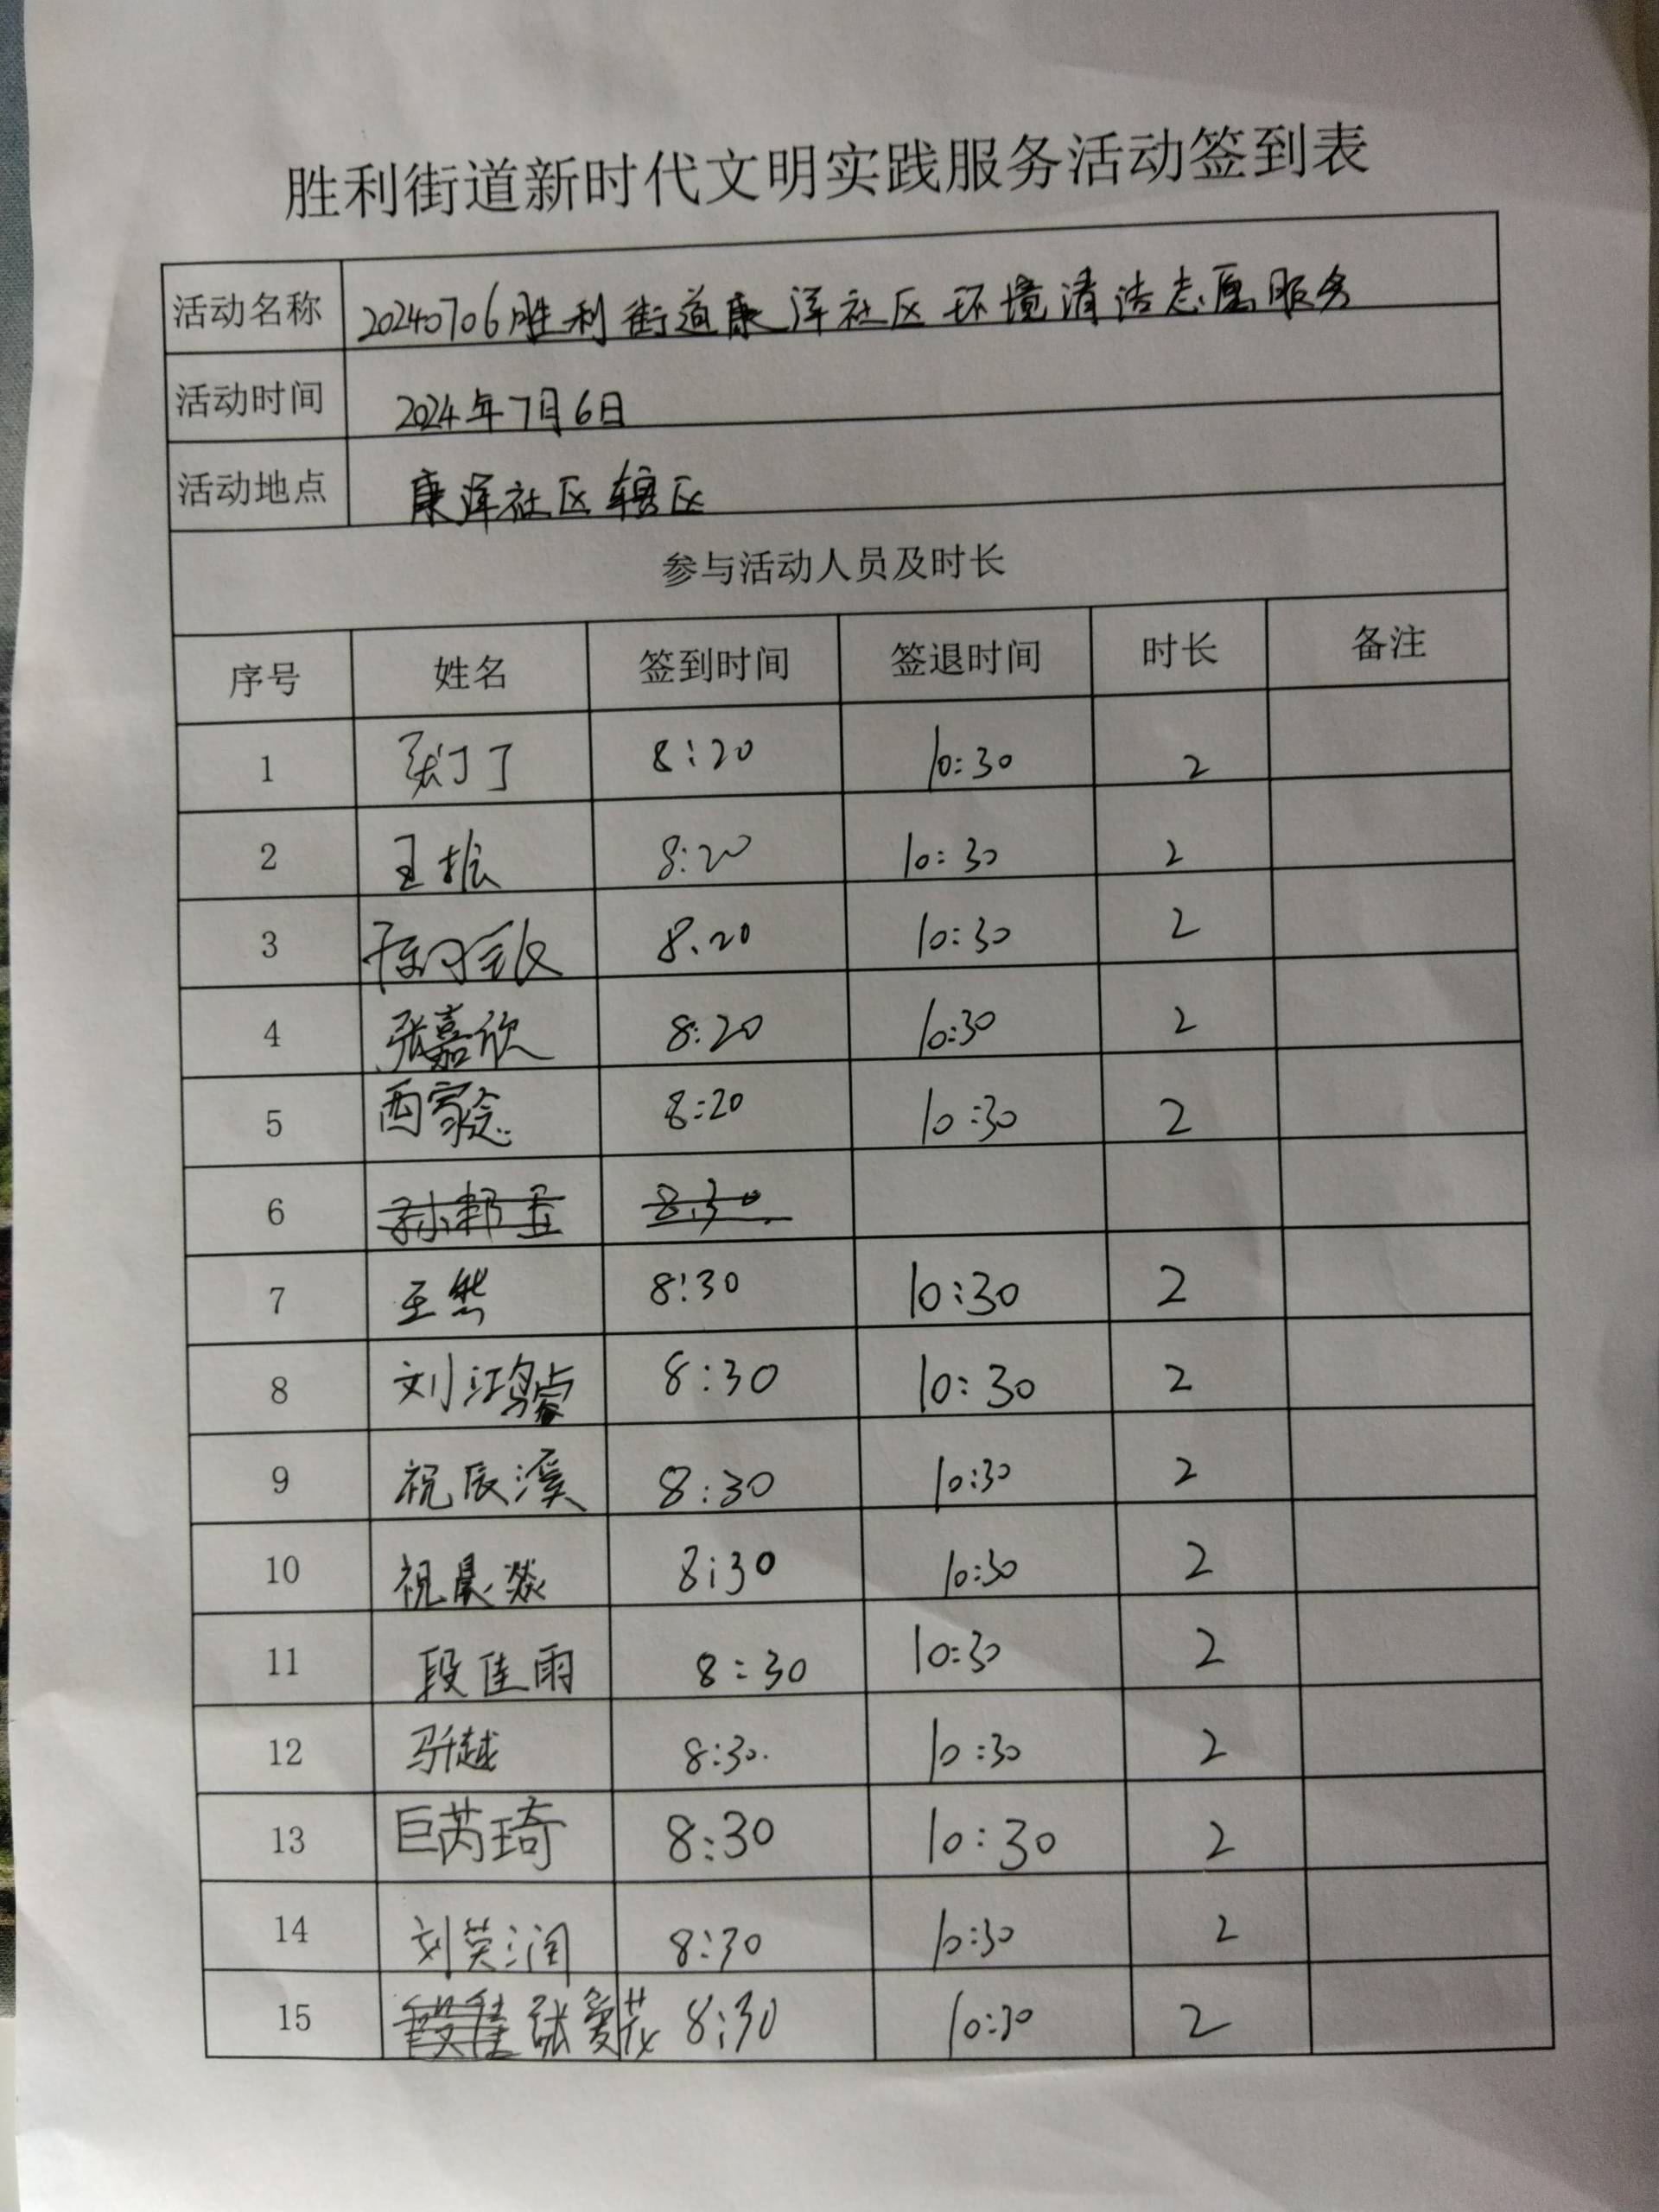 胜利街道新时代文明实践服务活动签到表
活动名称 20240706胜利街道康泽社区环境清洁志愿服务
活动时间 2024年7月6日
活动地点 康泽社区辖区
参与活动人员及时长
序号 姓名 签到时间 签退时间 时长 备注
1 8:20 10:30 2
2 王振 8:20 10:30 2
3 8:20 10:30 2
4 张嘉欣 8:20 10:30 2
5 西家念 8:20 10:30 2
6 孙邦玉 8:30
7 王然 8:30 10:30 2
8 刘鸿睿 8:30 10:30 2
9 祝辰溪 8:30 10:30 2
10 祝晨燚 8:30 10:30 2
11 段佳雨 8:30 10:30 2
12 马越 8:30 10:30 2
13 巨芮琦 8:30 10:30 2
14 刘英润 8:30 10:30 2
15 段佳 张爱花 8:30 10:30 2